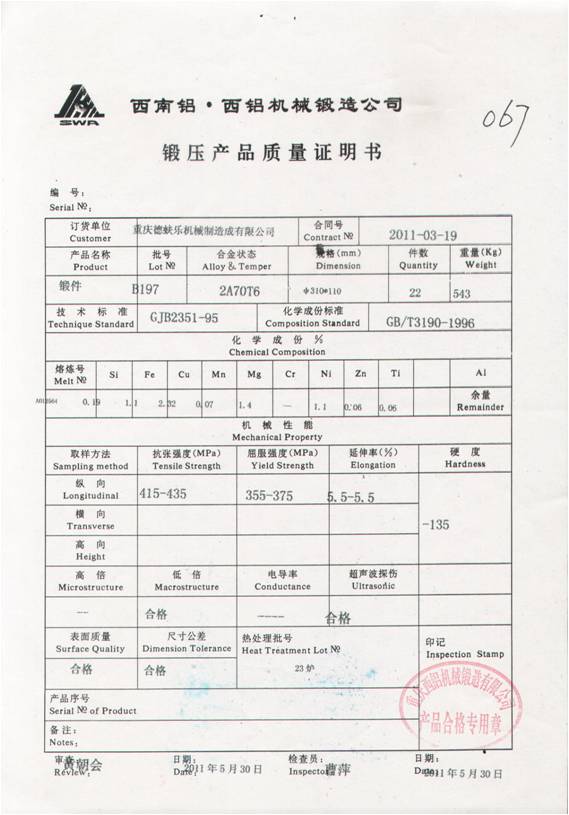 SWA
西南铝·西铝机械锻造公司
067
锻压产品质量证明书
编 号:
Serial №:
订货单位 重庆德蚨乐机械制造成有限公司 合同号 2011-03-19
Customer Contract №
产品名称 批号 合金状态 规格(mm) 件数 重量(Kg)
Product Lot № Alloy & Temper Dimension Quantity Weight
锻件 B197 2A70T6 Φ310*110 22 543
技 术 标 准 GJB2351-95 化学成份标准 GB/T3190-1996
Technique Standard Composition Standard
化 学 成 份 %
Chemical Composition
熔炼号 Si Fe Cu Mn Mg Cr Ni Zn Ti Al
Melt №
0.19 1.1 2.32 0.07 1.4 — 1.1 0.06 0.06 余量
Remainder
机 械 性 能
Mechanical Property
取样方法 抗张强度(MPa) 屈服强度(MPa) 延伸率(%) 硬 度
Sampling method Tensile Strength Yield Strength Elongation Hardness
纵 向 415-435 355-375 5.5-5.5
Longitudinal
横 向 -135
Transverse
高 向
Height
高 倍 低 倍 电导率 超声波探伤
Microstructure Macrostructure Conductance Ultrasonic
— 合格 ---- 合格
表面质量 尺寸公差 热处理批号 印记
Surface Quality Dimension Tolerance Heat Treatment Lot № Inspection Stamp
合格 合格 23炉
重庆西铝机械锻造有限公司
产品合格专用章
产品序号
Serial № of Product
备注:
Notes:
审查: 黄朝会 日期: 检查员: 曹萍 日期:
Review: Date: 2011年5月30日 Inspector: Date: 2011年5月30日